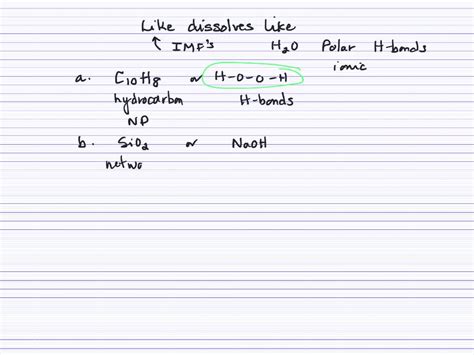 Like dissolves like
↑ IMF's H₂O Polar H-bonds
ionic
a. C₁₀H₈ or H-O-O-H
hydrocarbon H-bonds
NP
b. SiO₂ or NaOH
netwo